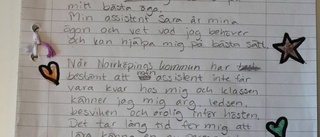 mitt bästa öga.
Min assistent Sara är mina
ögon och vet vad jag behöver
och kan hjälpa mig på bästa sätt.
När Norrköpings kommun har
bestämt att min assistent inte får
vara kvar hos mig och klassen
känner jag mig arg, ledsen,
besviken och orolig inför hösten.
Det tar lång tid för mig att